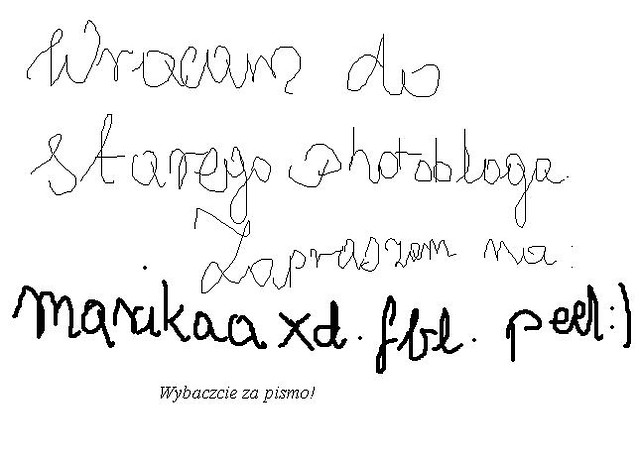 Wracam do
starego photobloga.
Zapraszam na:
marikaaxd.fbl.peel:)
Wybaczcie za pismo!